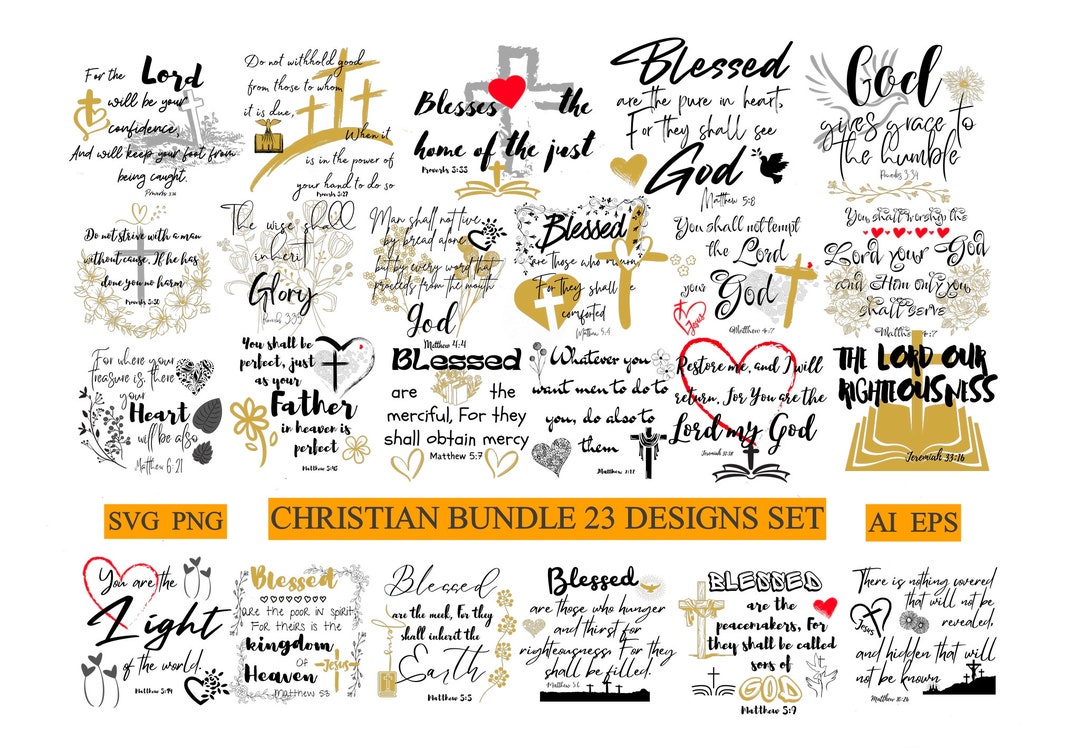 For the Lord
will be your
confidence,
And will keep your foot from
being caught.
Proverbs 3:26
Do not withhold good
from those to whom
it is due,
When it
is in the power of
your hand to do so
Proverbs 3:27
Blesses the
home of the just
Proverbs 3:33
Blessed
are the pure in heart,
For they shall see
God
Matthew 5:8
God
gives grace to
the humble
Proverbs 3:34
Do not strive with a man
without cause. If he has
done you no harm
Proverbs 3:30
The wise shall
inherit
Glory
Proverbs 3:35
Man shall not live
by bread alone
but by every word that
proceeds from the mouth
God
Matthew 4:4
Blessed
are those who mourn
For they shall e
comforted
Matthew 5:4
You shall not tempt
the Lord
your God
Jesus
Matthew 4:7
You shall worship the
Lord your God
and Him only you
shall serve
For where your
Treasure is, there
your
Heart
will be also
Matthew 6:21
You shall be
perfect, just
as your
Father
in heaven is
perfect
Blessed
are the
merciful, For they
shall obtain mercy
Matthew 5:7
Whatever you
want men to do to
you, do also to
them
Restore me, and I will
return, For You are the
Lord my God
THE LORD OUR
RIGHTEOUSNESS
Jeremiah 33:16
SVG PNG
CHRISTIAN BUNDLE 23 DESIGNS SET
AI EPS
You are the
Light
of the world.
Matthew 5:14
Blessed
are the poor in spirit,
For theirs is the
kingdom
OF
Heaven
Jesus
Matthew 5:3
Blessed
are the meek, For they
shall inherit the
Earth
Matthew 5:5
Blessed
are those who hunger
and thirst for
righteousness, For they
shall be filled.
Matthew 5:6
BLESSED
are the
peacemakers, For
they shall be called
sons of
GOD
Matthew 5:9
There is nothing covered
that will not be
revealed,
Jesus
and hidden that will
not be known
Matthew 10:26